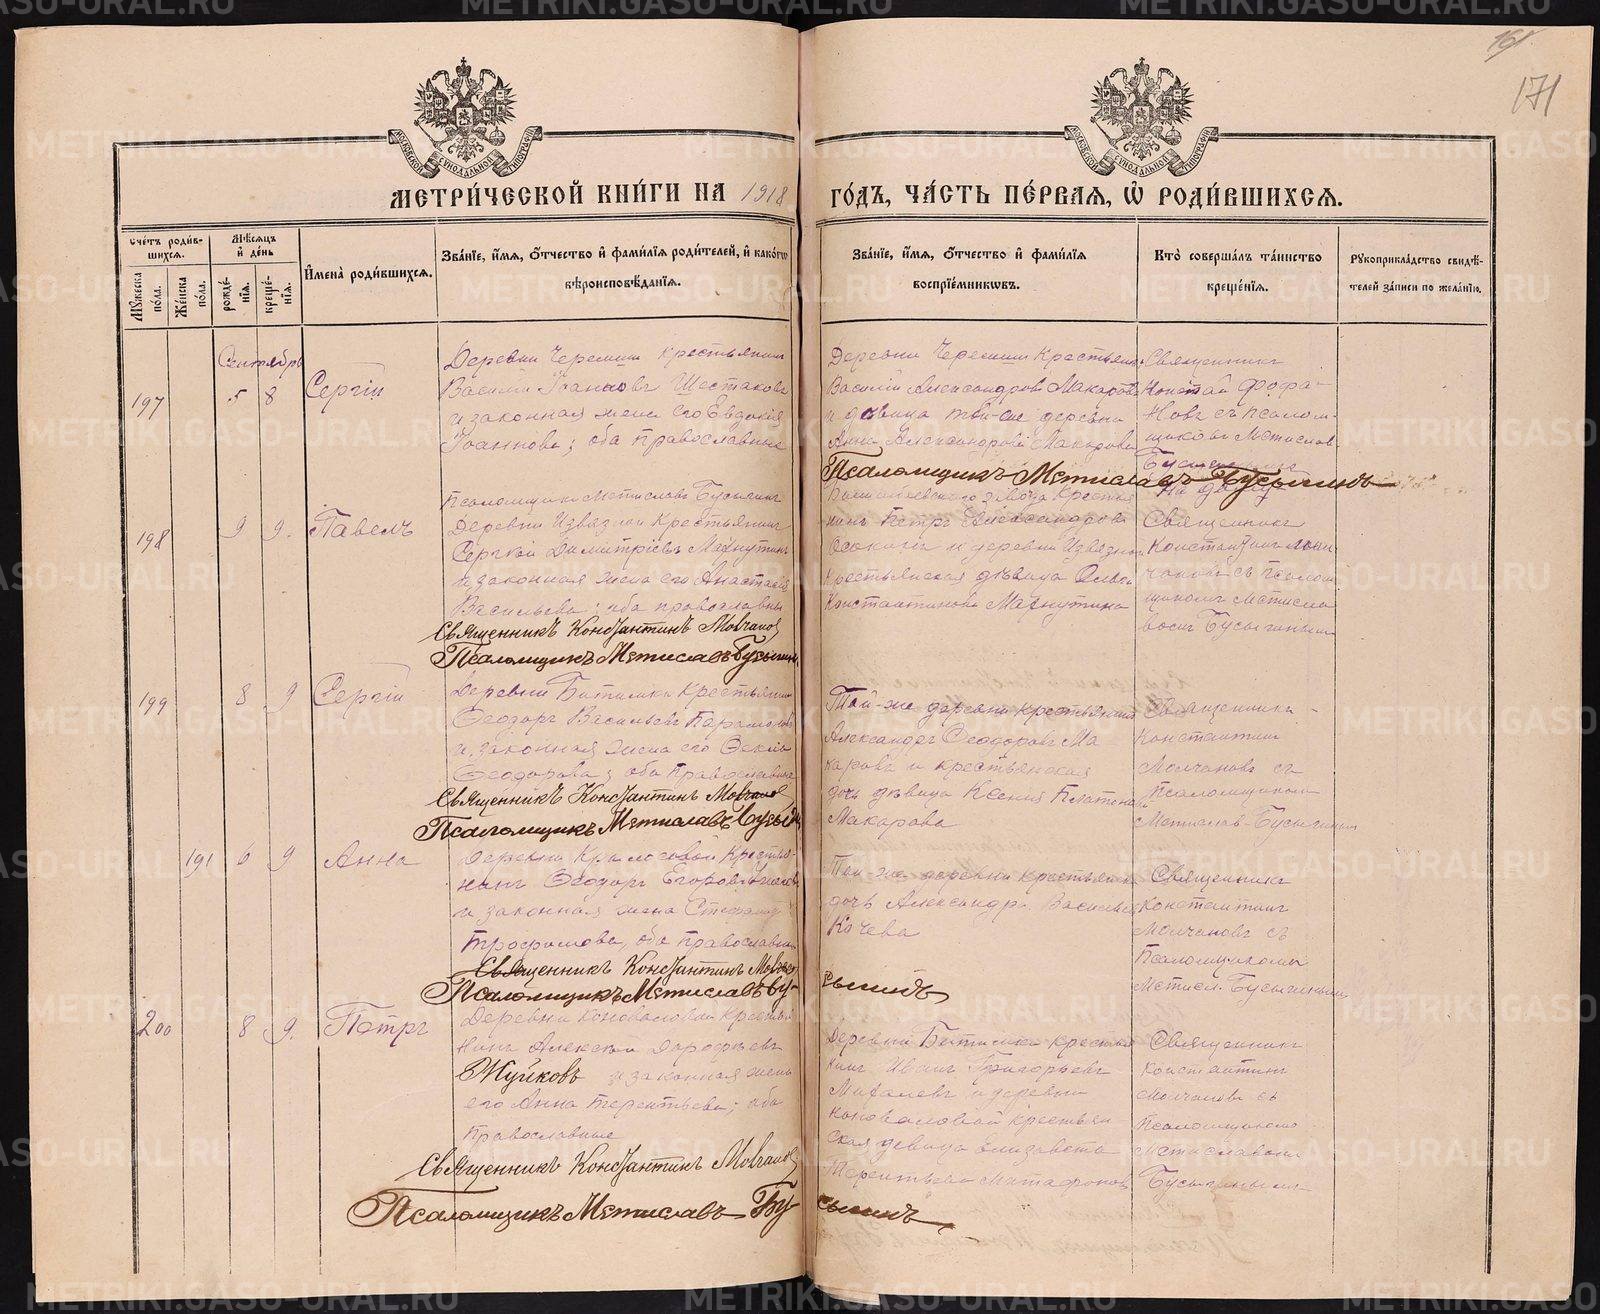 161
171
МЕТРИЧЕСКОЙ КНИГИ НА 1918 ГОДЪ, ЧАСТЬ ПЕРВАЯ, Ѡ РОДИВШИХСЯ.
Счетъ родившихся.
Мужеска пола.
Женска пола.
Мѣсяцъ и день
рожденія.
крещенія.
Имена родившихся.
Званіе, имя, отчество и фамилія родителей, и какогѡ
вѣроисповѣданія.
Званіе, имя, отчество и фамилія
воспріемникѡвъ.
Кто совершалъ таинство
крещенія.
Рукоприкладство свидѣ-
телей записи по желанію.
Сентябрь
197
5 8
Сергій
Деревни Черемши крестьянинъ
Василій Іоанновъ Шестаковъ
и законная жена его Евдокія
Іоаннова; оба православные
Деревни Черемши крестьянинъ
Василій Александровъ Макаровъ
и дѣвица той-же деревни
Анна Александрова Макарова
Священникъ
Новъ съ псалом-
щикомъ Мстислав.
Псаломщикъ Мстиславъ Бусыгинъ
198
9 9.
Павелъ
Псаломщикъ Мстиславъ Бусыгинъ
Деревни Извязной крестьянинъ
Сергѣй Димитріевъ Махнутинъ
и законная жена его Анастасія
Васильева; оба православны
Священникъ Константинъ Молчановъ
Псаломщикъ Мстиславъ Бусыгинъ
завода крестья
нинъ Петръ Александровъ
Осокинъ и деревни Извязной
крестьянская дѣвица Ольга
Константинова Махнутина
Священникъ
Константинъ Молчановъ съ псалом
щикомъ Мстисла
вомъ Бусыгинымъ
199
8 9
Сергій
Деревни Битимки крестьянинъ
Ѳеодоръ Васильевъ
и законная жена его Ѳекла
Ѳеодорова; оба православные
Священникъ Константинъ Молчановъ
Псаломщикъ Мстиславъ Бусыгинъ
Той-же деревни крестьянинъ
Александръ Ѳеодоровъ Ма
каровъ и крестьянская
дочь дѣвица Ксенія Платонова
Макарова
Священникъ
Константинъ
Молчановъ съ
Псаломщикомъ
Мстислав. Бусыгинымъ
191 6 9
Анна
Деревни Крылосовой крестья-
нинъ Ѳеодоръ Егоровъ
и законная жена Стефанида
Трофимова, оба православные
Священникъ Константинъ Молчановъ
Псаломщикъ Мстиславъ Бу-
сыгинъ
Той-же деревни крестьян
дочь Александра Васильева
Кочева
Священникъ
Константинъ
Молчановъ съ
Псаломщикомъ
Мстисл. Бусыгинымъ
200
8 9.
Петръ
Деревни Коноваловой крестья
нинъ Алексѣй Дороѳеевъ
Жуйковъ и законная жена
его Анна Терентьева; оба
православные
Священникъ Константинъ Молчановъ
Псаломщикъ Мстиславъ Бу-
сыгинъ
Деревни Битимки крестья
нинъ Иванъ Григорьевъ
Михалевъ и деревни
Коноваловой крестьян
ская дѣвица Елизавета
Терентьева
Священникъ
Константинъ
Молчановъ съ
Псаломщикомъ
Мстиславомъ
Бусыгинымъ
METRIKI.GASO-URAL.RU